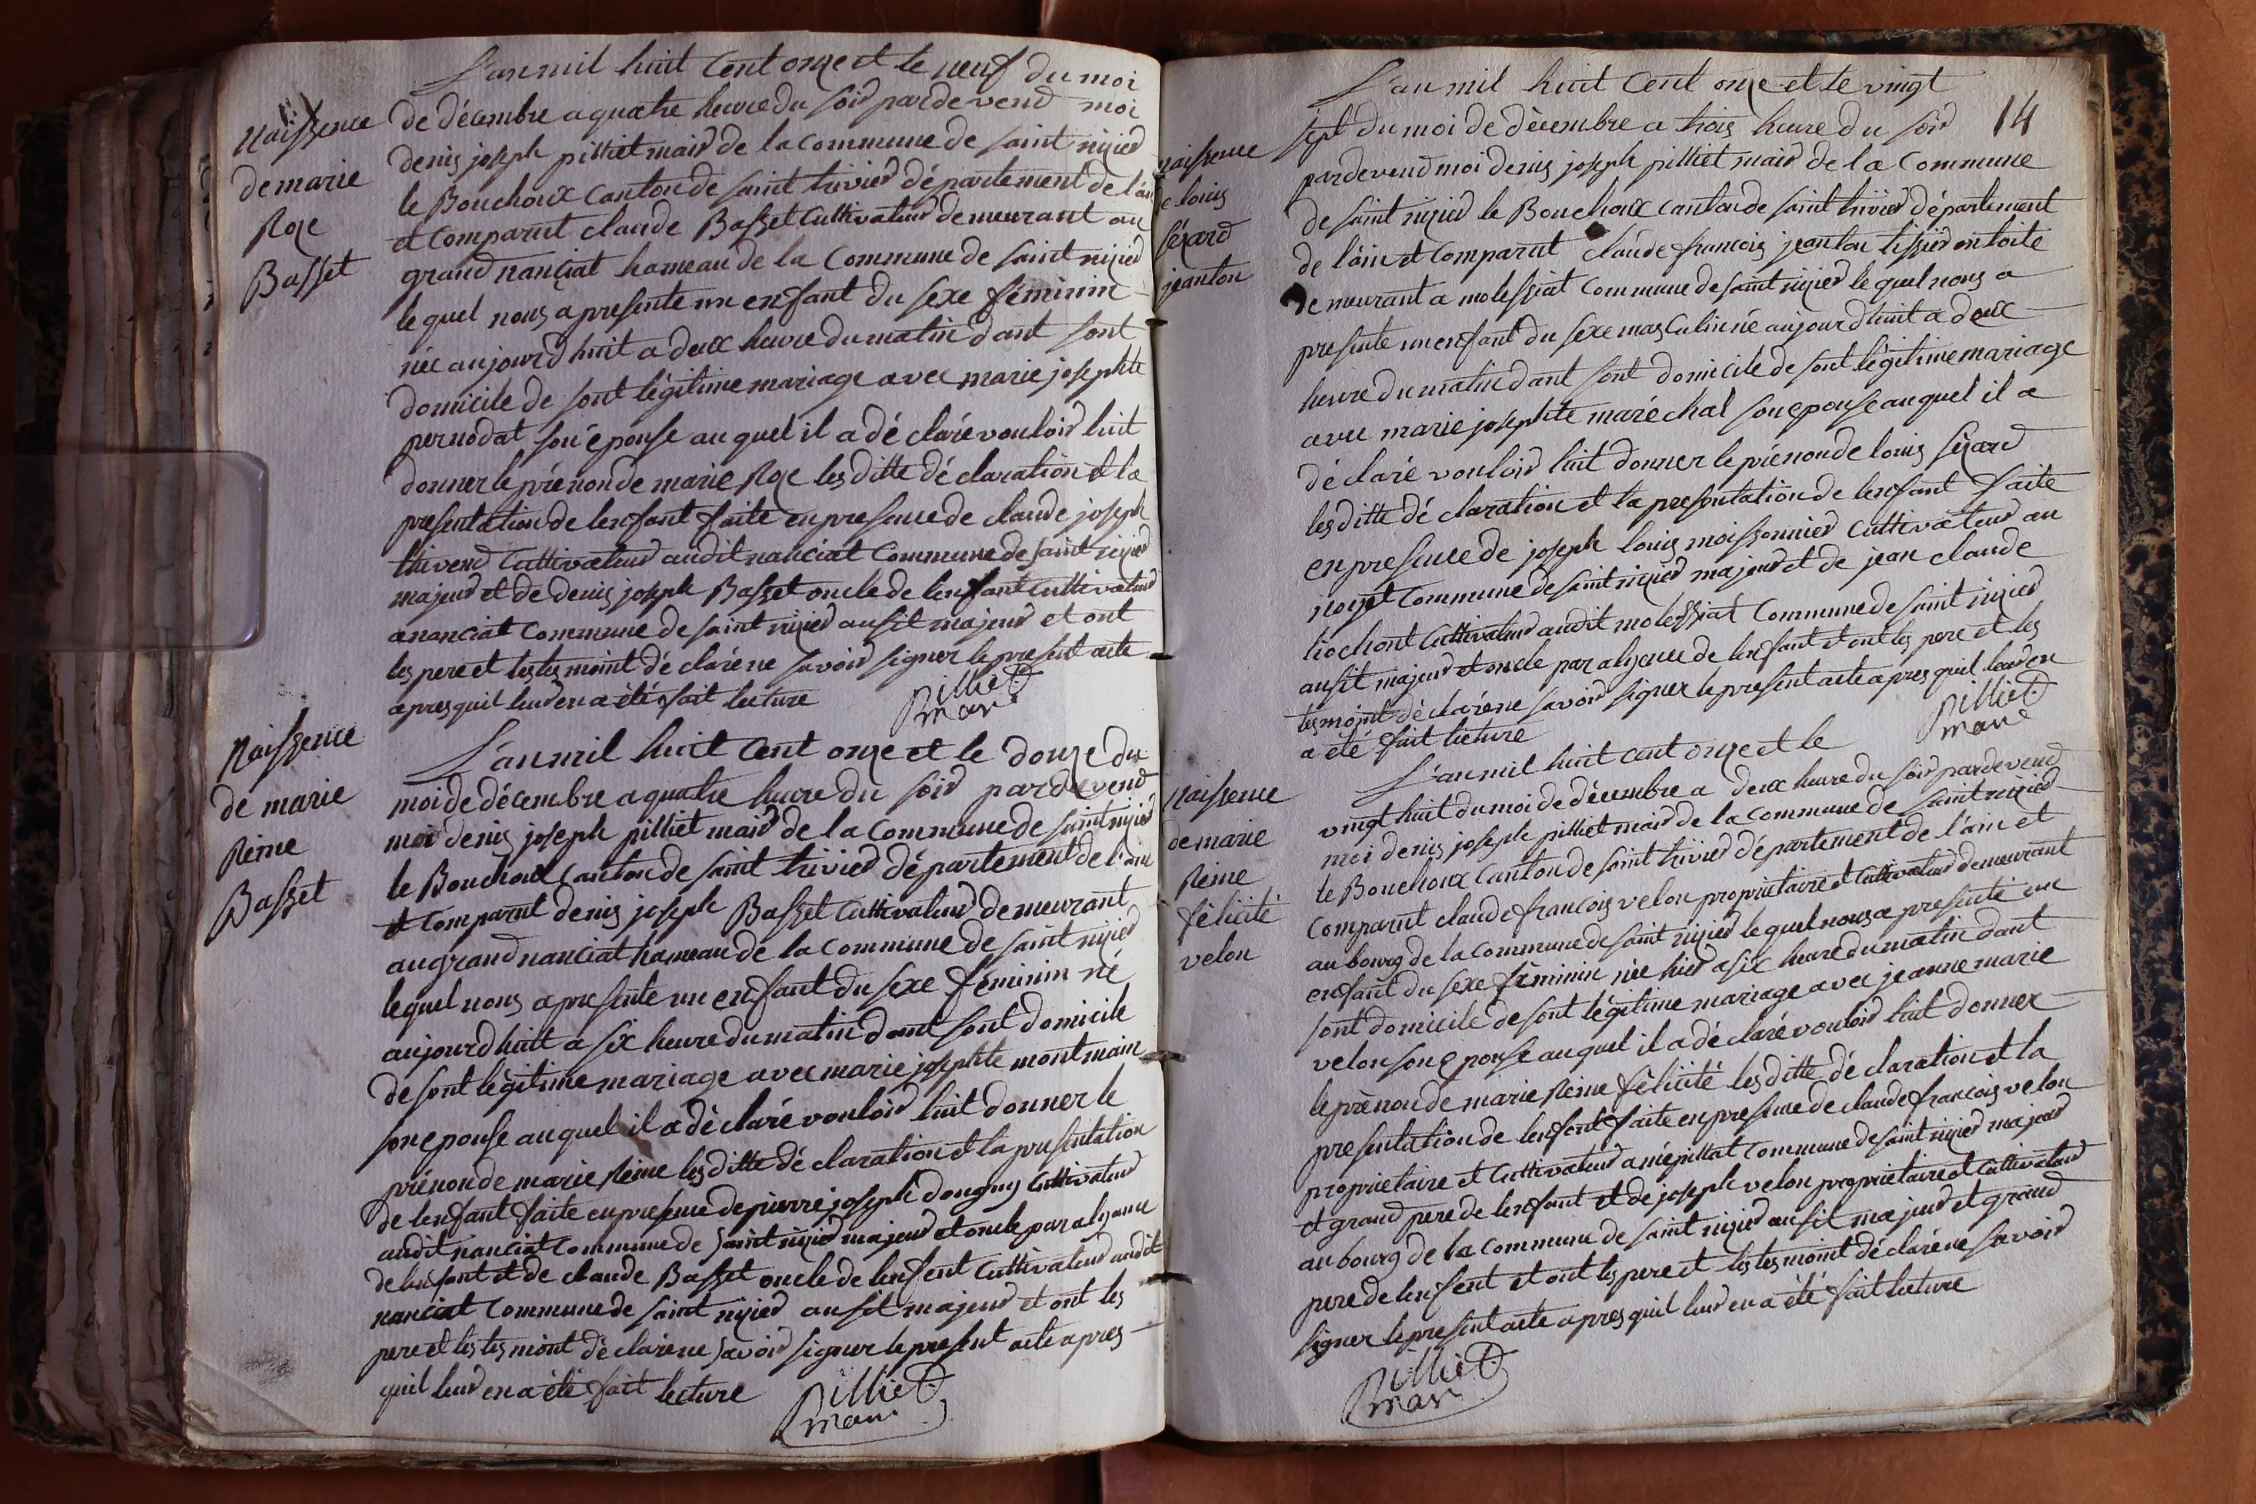 Naissence
de marie
Roze
Basset
L'an mil huit Cent onze et le neuf du moi
de décembre a quatre heure du soir pardevend moi
denis joseph pilliet mair de la Commune de saint nizied
le Bouchoux Canton de saint trivied département de l'ain
et Comparut claude Basset Cultivateur demeurant au
grand nanciat hameau de la Commune de saint nizied
le quel nous a presente un enfant du sexe féminin
née aujourd huit a deux heure du matin dant sont
domicile de sont légitime mariage avec marie josephte
pernodat son éponse au quel il a dé claré vouloir luit
donner le prénon de marie Roze les ditte dé claration et la
presentation de lenfant faite en presence de claude joseph
thivend Cultivateur audit nanciat Commune de saint nizied
majeur et de denis joseph Basset oncle de lenfant Cultivateur
a nanciat Commune de saint nizied ausit majeur et ont
les pere et les tes moint dé claré ne savoir signer le present acte
apres quil leur en a été fait lecture
Pilliet
mair
Naissence
de marie
Reine
Basset
L'an mil huit Cent onze et le douze du
moi de décembre a quatre heure du soir pardevend
moi denis joseph pilliet mair de la Commune de saint nizied
le Bouchoux Canton de saint trivied département de l'ain
et Comparut denis joseph Basset Cultivateur demeurant
au grand nanciat hameau de la Commune de saint nizied
le quel nous a presente un enfant du sexe féminin né
aujourd huit a six heure du matin dant sont domicile
de sont légitime mariage avec marie josephte montmain
son eponse au quel il a dé claré vouloir luit donner le
prénon de marie Reine les ditte dé claration et la presentation
de lenfant faite en presence de pierre joseph dougny Cultivateur
audit nanciat Commune de saint nizied majeur et oncle par alyance
de lenfant et de claude Basset oncle de lenfent Cultivateur audit
nanciat Commune de saint nizied ausit majeur et ont les
pere et les tes moint dé claré ne savoir signer le present acte apres
quil leur en a été fait lecture
Pilliet
mair
14
naissence
de louis
sézard
jeanton
L'an mil huit Cent onze et le vingt
sept du moi de décembre a trois heure du soir
pardevend moi denis joseph pilliet mair de la Commune
de saint nizied le Bouchoux Canton de saint trivied département
de l'ain et Comparut claude francois jeanton tissied en toite
demeurant a molessiat Commune de saint nizied le quel nous a
presente un enfant du sexe masculin né aujourd huit a deux
heure du matin dant sont domicile de sont légitime mariage
avec marie josephte maréchal son eponse au quel il a
déclaré vouloir luit donner le prénon de louis sézard
les ditte dé claration et la presentation de lenfant faite
en presence de joseph louis moissonnied Cultivateur au
noyet Commune de saint nizied majeur et de jean claude
liochont Cultivateur audit molessiat Commune de saint nizied
ausit majeur et oncle par alyance de lenfant et ont les pere et les
tes moint dé claré ne savoir signer le present acte apres quil leur en
a été fait lecture
Pilliet
mair
Naissence
de marie
Reine
félicité
velon
L'an mil huit cent onze et le
vingt huit du moi de décembre a deux heure du soir pardevend
moi denis joseph pilliet mair de la Commune de saint nizied
le Bouchoux Canton de saint trivied département de l'ain et
Comparut claude francois velon proprietaire et Cultivateur demeurant
au bourg de la Commune de saint nizied le quel nous a presente un
enfant du sexe féminin née hier a six heure du matin dant
sont domicile de sont légitime mariage avec jeanne marie
velon son eponse au quel il a dé claré vouloir luit donner
le prénon de marie Reine félicité les ditte dé claration et la
presentation de lenfant faite en presence de claude francois velon
proprietaire et Cultivateur a mépillat Commune de saint nizied majeur
et grand pere de lenfant et de joseph velon proprietaire et Cultivateur
au bourg de la Commune de saint nizied ausit majeur et grand
pere de lenfent et ont les pere et les tes moint dé claré ne savoir
signer le present acte apres quil leur en a été fait lecture
Pilliet
mair